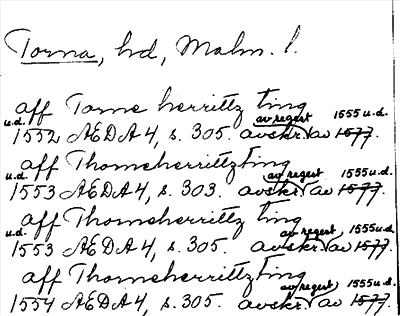 Torna, hd, Malm. l.
aff Torne herrittz ting
u.d. av regest 1555 u.d.
1552 AEDA 4, s. 305. avskr. av 1577.
aff Thorneherrittzting
u.d. av regest 1555 u.d.
1553 AEDA 4, s. 303. avskr. av 1577.
aff Thorneherrittz ting
u.d. av regest, 1555 u.d.
1553 AEDA 4, s. 305. avskr. av 1577.
aff Thorneherrittz ting
av regest, 1555 u.d.
1554 AEDA 4, s. 305. avskr. av 1577.